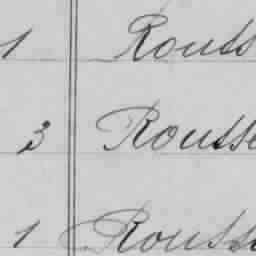 1 Rouss
3 Rousse
1 Rousse